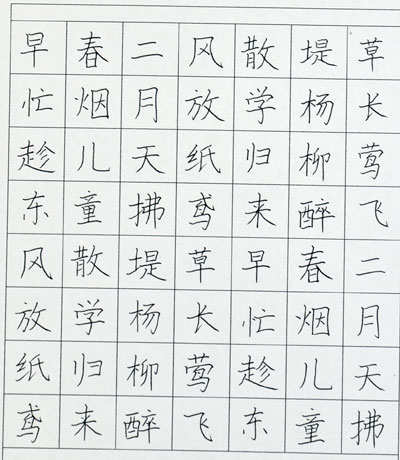 早春二风散堤草
忙烟月放学杨长
趁儿天纸归柳莺
东童拂鸢来醉飞
风散堤草早春二
放学杨长忙烟月
纸归柳莺趁儿天
鸢来醉飞东童拂